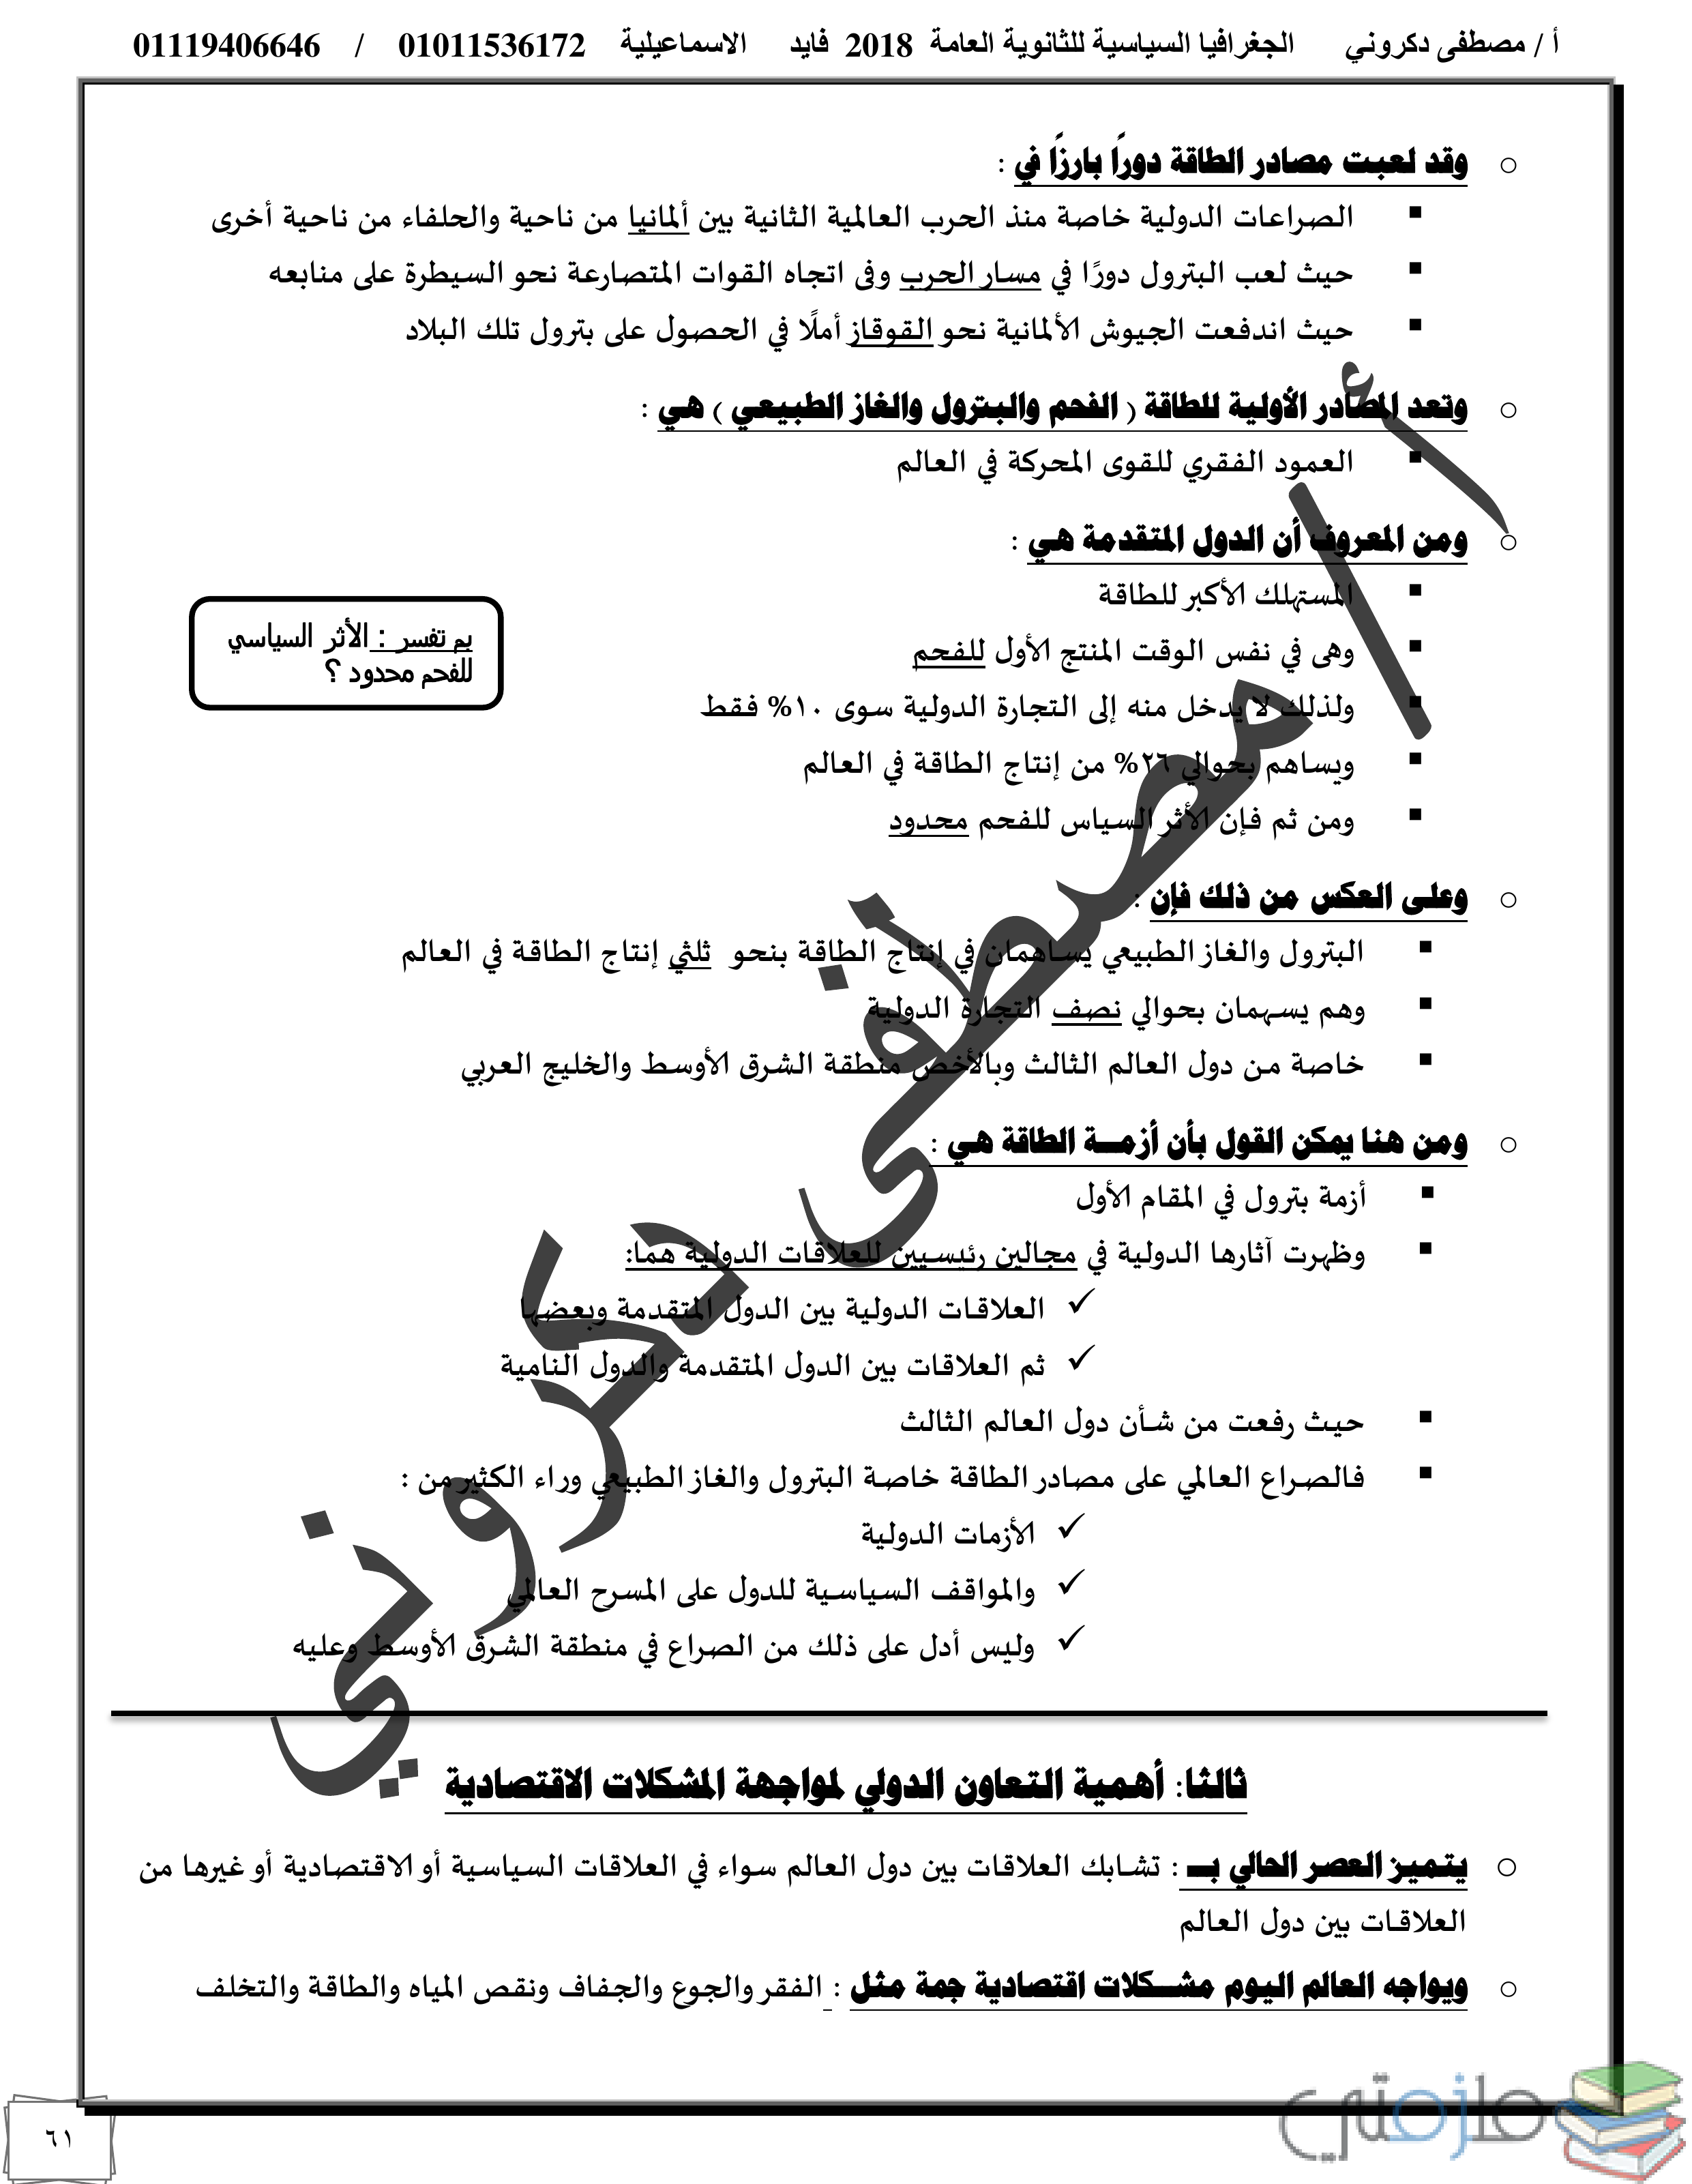 أ / مصطفى دكروني الجغرافيا السياسية للثانوية العامة 2018 فايد الاسماعيلية 01011536172 / 01119406646
وقد لعبت مصادر الطاقة دورًا بارزًا في :
الصراعات الدولية خاصة منذ الحرب العالمية الثانية بين ألمانيا من ناحية والحلفاء من ناحية أخرى
حيث لعب البترول دورًا في مسار الحرب وفى اتجاه القوات المتصارعة نحو السيطرة على منابعه
حيث اندفعت الجيوش الألمانية نحو القوقاز أملًا في الحصول على بترول تلك البلاد
وتعد المصادر الأولية للطاقة ( الفحم والبترول والغاز الطبيعي ) هي :
العمود الفقري للقوى المحركة في العالم
ومن المعروف أن الدول المتقدمة هي :
المستهلك الأكبر للطاقة
وهى في نفس الوقت المنتج الأول للفحم
ولذلك لا يدخل منه إلى التجارة الدولية سوى ١٠% فقط
ويساهم بحوالي ٢٦% من إنتاج الطاقة في العالم
ومن ثم فإن الأثر السياس للفحم محدود
بم تفسر : الأثر السياسي
للفحم محدود ؟
وعلى العكس من ذلك فإن :
البترول والغاز الطبيعي يساهمان في إنتاج الطاقة بنحو ثلثي إنتاج الطاقة في العالم
وهم يسهمان بحوالي نصف التجارة الدولية
خاصة من دول العالم الثالث وبالأخص منطقة الشرق الأوسط والخليج العربي
ومن هنا يمكن القول بأن أزمــة الطاقة هي :
أزمة بترول في المقام الأول
وظهرت آثارها الدولية في مجالين رئيسيين للعلاقات الدولية هما:
العلاقات الدولية بين الدول المتقدمة وبعضها
ثم العلاقات بين الدول المتقدمة والدول النامية
حيث رفعت من شأن دول العالم الثالث
فالصراع العالمي على مصادر الطاقة خاصة البترول والغاز الطبيعي وراء الكثير من :
الأزمات الدولية
والمواقف السياسية للدول على المسرح العالمي
وليس أدل على ذلك من الصراع في منطقة الشرق الأوسط وعليه
أ / مصطفى دكروني
ثالثا: أهمية التعاون الدولي لمواجهة المشكلات الاقتصادية
يتميز العصر الحالي بــ : تشابك العلاقات بين دول العالم سواء في العلاقات السياسية أو الاقتصادية أو غيرها من
العلاقات بين دول العالم
ويواجه العالم اليوم مشــكلات اقتصادية جمة مثل : الفقر والجوع والجفاف ونقص المياه والطاقة والتخلف
ملزمتي
٦١